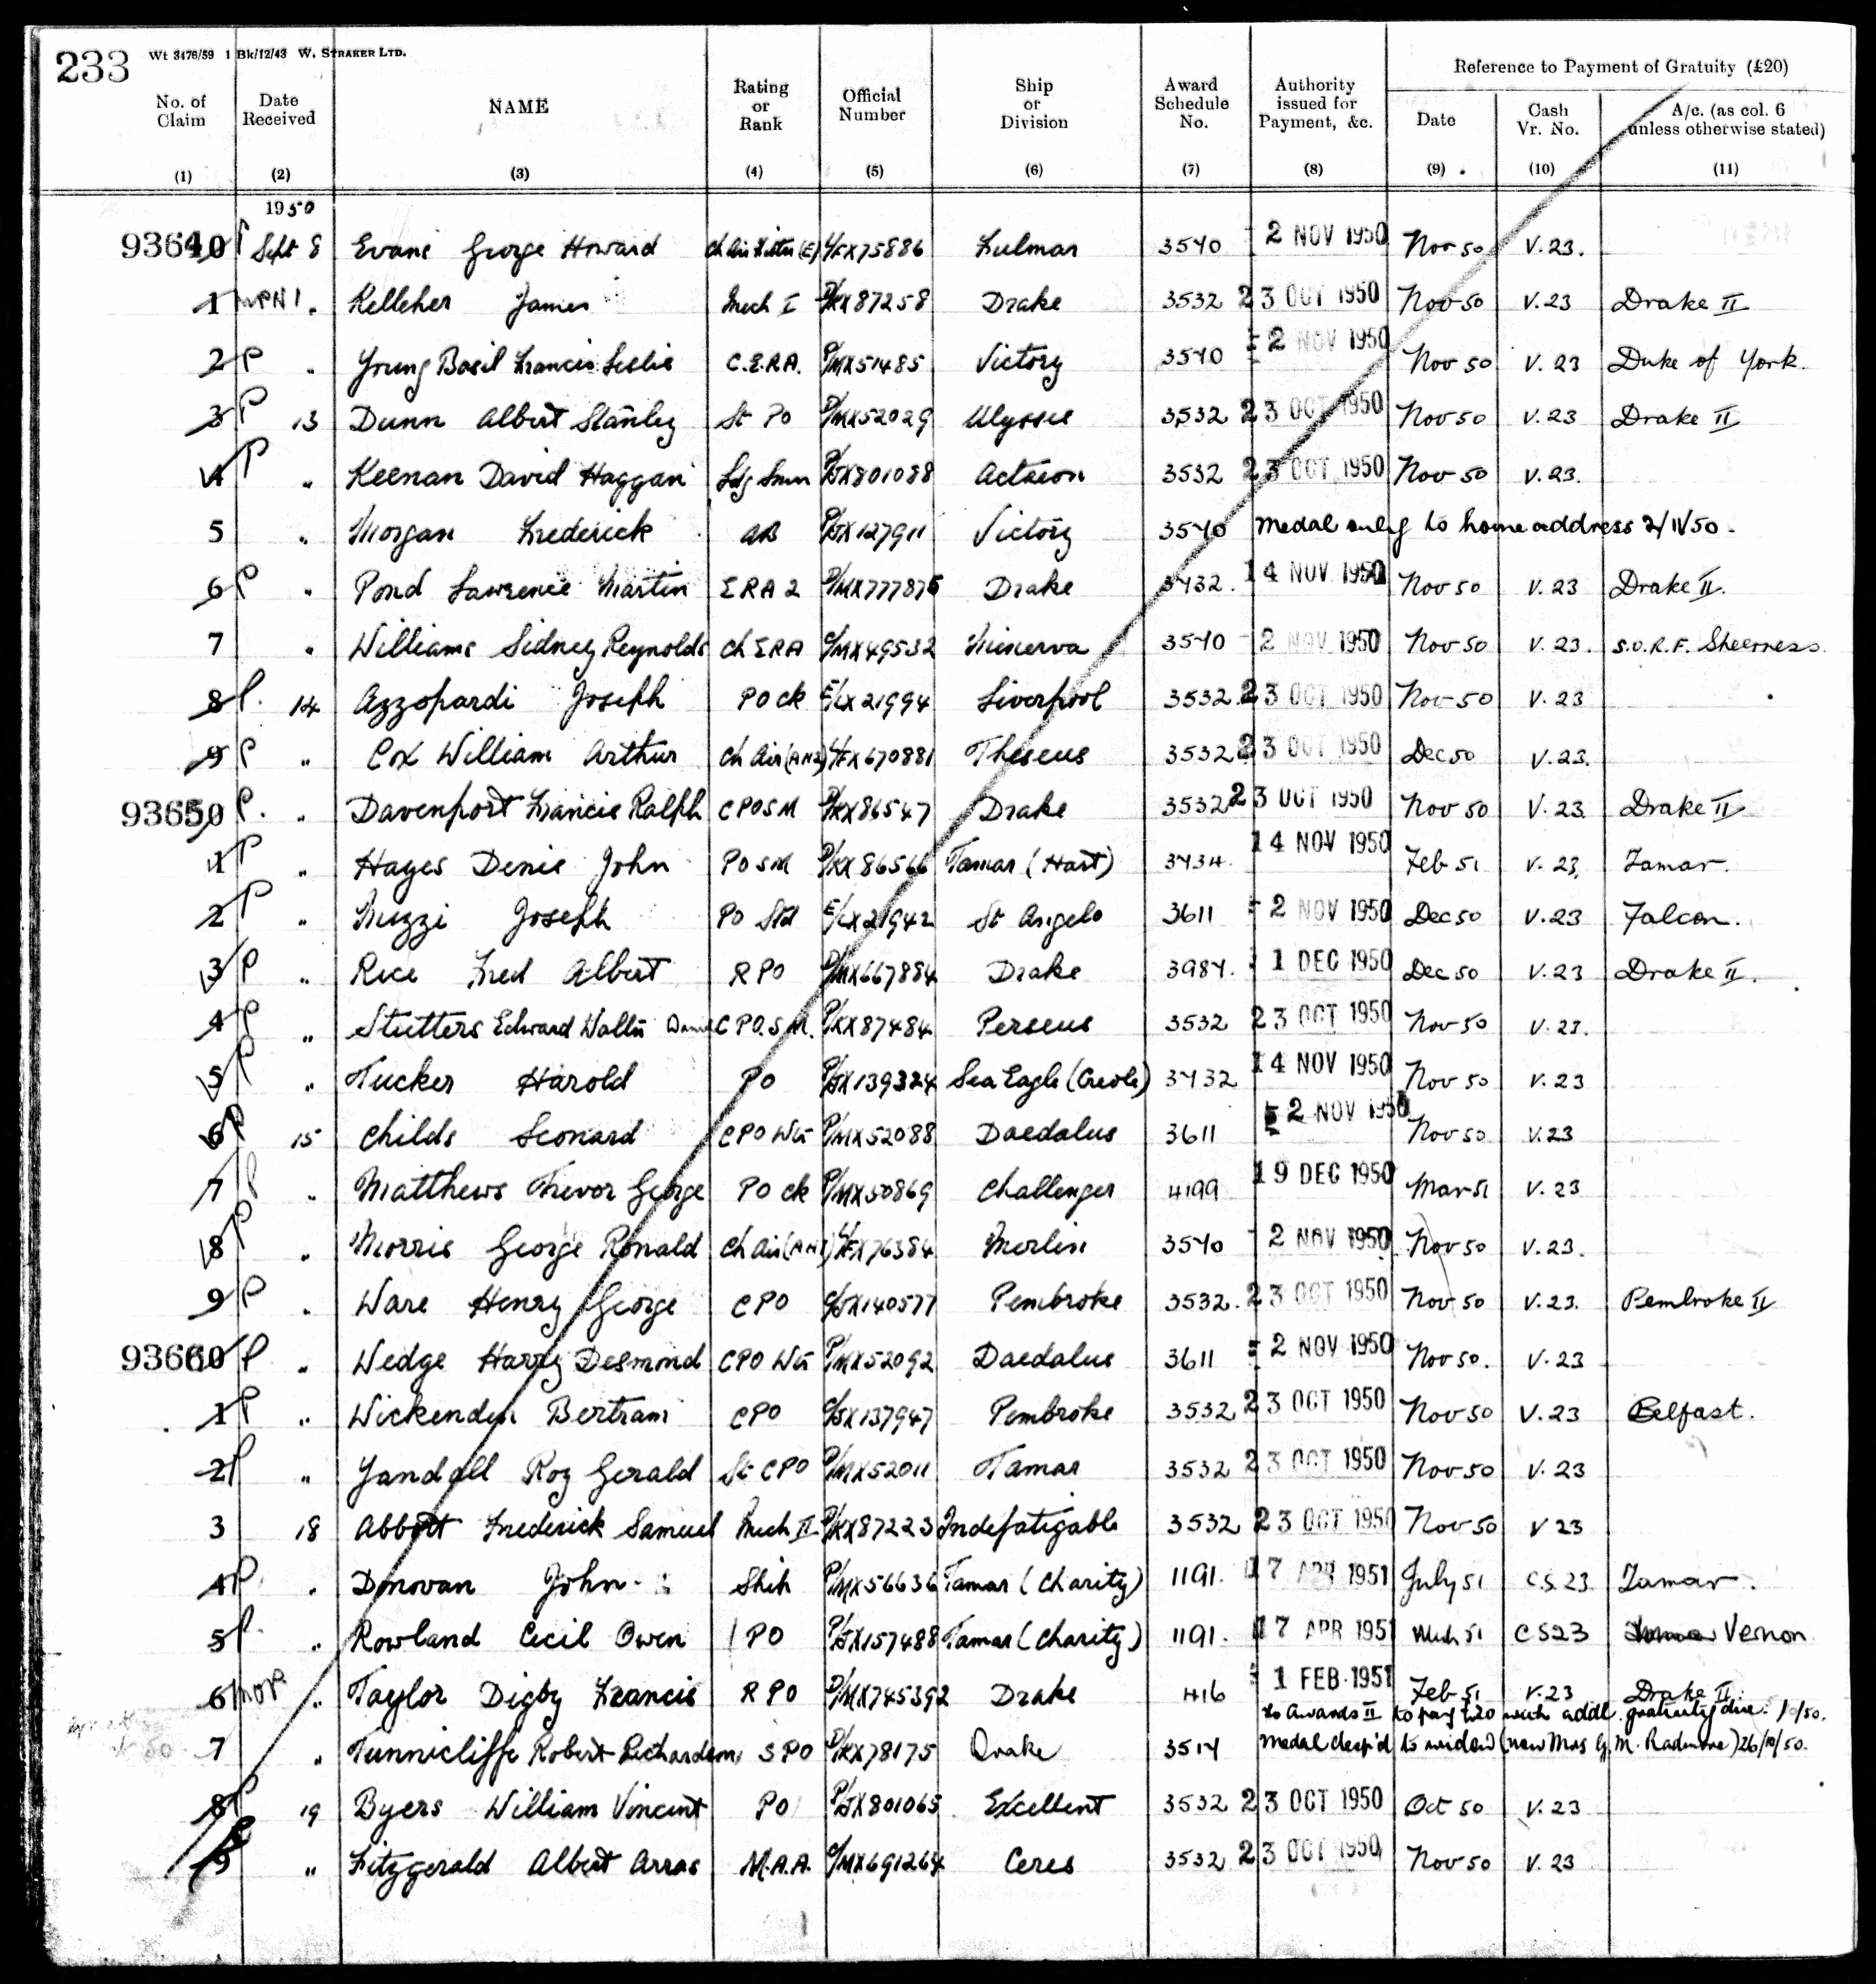 233 Wt 3476/59 1 Bk/12/43 W. STRAKER LTD.
Reference to Payment of Gratuity (£20)
No. of Claim Date Received NAME Rating or Rank Official Number Ship or Division Award Schedule No. Authority issued for Payment, &c. Date Cash Vr. No. A/c. (as col. 6 unless otherwise stated)
(1) (2) (3) (4) (5) (6) (7) (8) (9) (10) (11)
1950
93640 P Sept 8 Evans George Howard L/FX75886 Fulmar 3540 - 2 NOV 1950 Nov 50 V.23.
1 " Kelleher James Mech I D/KX87258 Drake 3532 23 OCT 1950 Nov 50 V.23 Drake II
2 P " Young Basil Francis Leslie C.E.R.A. P/MX51485 Victory 3540 - 2 NOV 1950 Nov 50 V.23 Duke of York.
3 P 13 Dunn Albert Stanley St PO D/MX52029 Ulysses 3532 23 OCT 1950 Nov 50 V.23 Drake II
4 P " Keenan David Haggan Ldg Smn P/JX801088 Actaeon 3532 23 OCT 1950 Nov 50 V.23.
5 " Morgan Frederick AB P/JX127911 Victory 3540 Medal only to home address 2/11/50.
6 P " Pond Lawrence Martin ERA 2 D/MX777876 Drake 3732. 14 NOV 1950 Nov 50 V.23 Drake II.
7 " Williams Sidney Reynolds Ch ERA C/MX49532 Minerva 3540 - 2 NOV 1950 Nov 50 V.23. S.O.R.F. Sheerness
8 P. 14 Azzopardi Joseph PO Ck E/LX21994 Liverpool 3532 23 OCT 1950 Nov 50 V.23
9 P " Cox William Arthur L/FX670881 Theseus 3532 23 OCT 1950 Dec 50 V.23.
93650 P. " Davenport Francis Ralph CPOSM D/KX86547 Drake 3532 23 OCT 1950 Nov 50 V.23. Drake II
1 P " Hayes Denis John PO SM D/KX86566 Tamar (Hart) 3734 14 NOV 1950 Feb 51 V.23. Tamar.
2 P " Muzzi Joseph PO Std E/LX21942 St Angelo 3611 - 2 NOV 1950 Dec 50 V.23 Falcon.
3 P " Rice Fred Albert RPO D/MX667884 Drake 3984. - 1 DEC 1950 Dec 50 V.23 Drake II.
4 P " Stutters Edward Wallis Daniel CPO.S.M. P/KX87484 Perseus 3532 23 OCT 1950 Nov 50 V.23.
5 P " Tucker Harold PO P/JX139324 Sea Eagle (Creole) 3732 14 NOV 1950 Nov 50 V.23
6 P 15 Childs Leonard CPO Wtr P/MX52088 Daedalus 3611 - 2 NOV 1950 Nov 50 V.23
7 P " Matthews Trevor George PO Ck P/MX50869 Challenger 4199 19 DEC 1950 Mar 51 V.23
8 P " Morris George Ronald L/FX76384 Merlin 3540 - 2 NOV 1950 Nov 50 V.23.
9 P " Ware Henry George CPO C/JX140577 Pembroke 3532. 23 OCT 1950 Nov 50 V.23. Pembroke II
93660 P " Wedge Harry Desmond CPO Wtr P/MX52092 Daedalus 3611 - 2 NOV 1950 Nov 50. V.23
1 P " Wickenden Bertram CPO C/JX137947 Pembroke 3532 23 OCT 1950 Nov 50 V.23 Belfast.
2 P " Yandall Roy Gerald St CPO P/MX52011 Tamar 3532 23 OCT 1950 Nov 50 V.23
3 18 Abbott Frederick Samuel Mech II P/KX87223 Indefatigable 3532 23 OCT 1950 Nov 50 V 23
4 P " Donovan John Sh P/MX56636 Tamar (Charity) 1191. 17 APR 1951 July 51 C.S.23. Tamar.
5 P. " Rowland Cecil Owen PO P/JX157488 Tamar (Charity) 1191. 17 APR 1951 51 CS23 Vernon
6 " Taylor Digby Francis RPO D/MX745392 Drake 416 - 1 FEB 1951 Feb 51 V.23 Drake II.
to Awards II to pay £20 with addl. gratuity due. /10/50.
7 " Tunnicliffe Robert Richardson SPO D/KX78175 Drake 3514 Medal desp'd to widow (now Mrs G. M. Radmore) 26/10/50.
8 P 19 Byers William Vincent PO P/JX801065 Excellent 3532 23 OCT 1950 Oct 50 V.23
9 P " Fitzgerald Albert Arras M.A.A. C/MX691264 Ceres 3532 23 OCT 1950 Nov 50 V.23